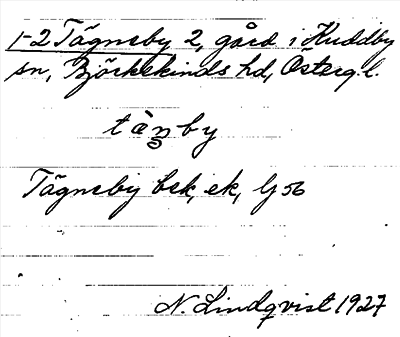 1-2 Tägneby 2, gård i Kuddby
sn, Björkekinds hd, Österg. l.
tä̀ŋby
Tägneby bsk, ek, Gj 56
N. Lindqvist 1927